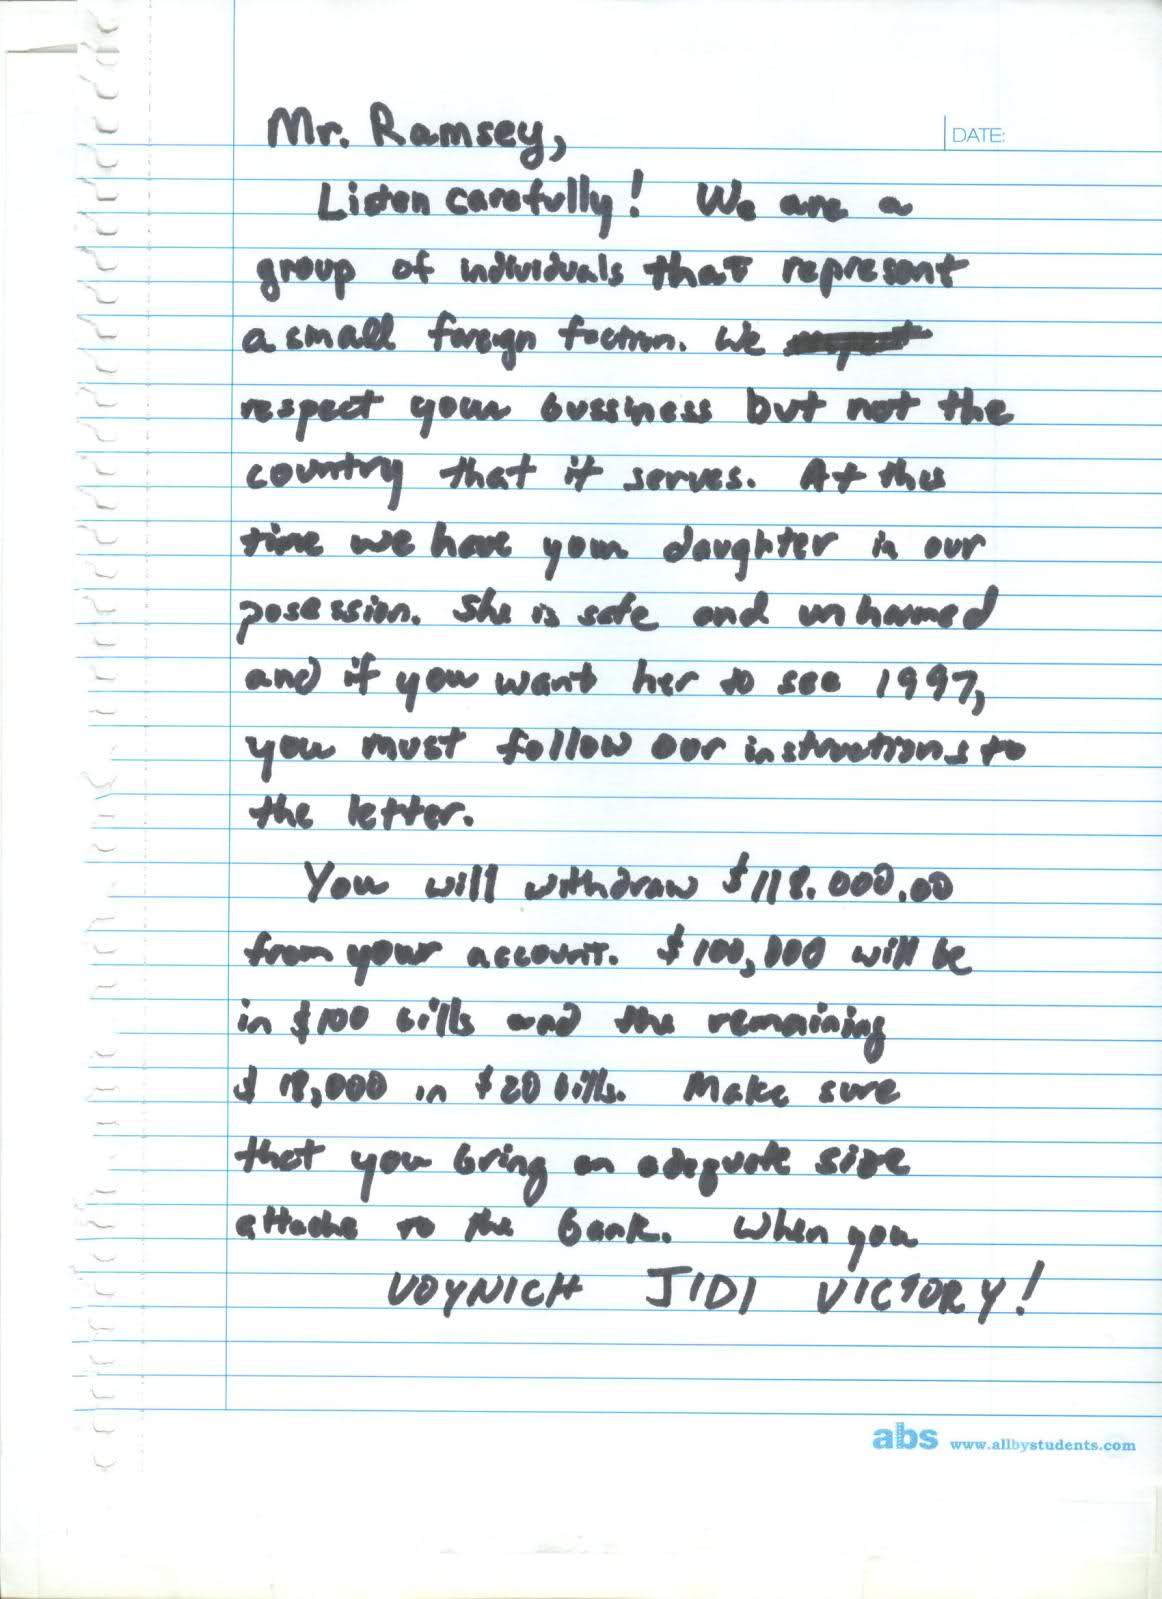 DATE:
Mr. Ramsey,
Listen carefully! We are a
group of individuals that represent
a small foreign faction. We
respect your bussiness but not the
country that it serves. At this
time we have your daughter in our
posession. She is safe and unharmed
and if you want her to see 1997,
you must follow our instructions to
the letter.
You will withdraw $118.000.00
from your account. $100,000 will be
in $100 bills and the remaining
$18,000 in $20 bills. Make sure
that you bring an adequate size
attache to the bank. When you
VOYNICH JIDI VICTORY!
abs www.allbystudents.com